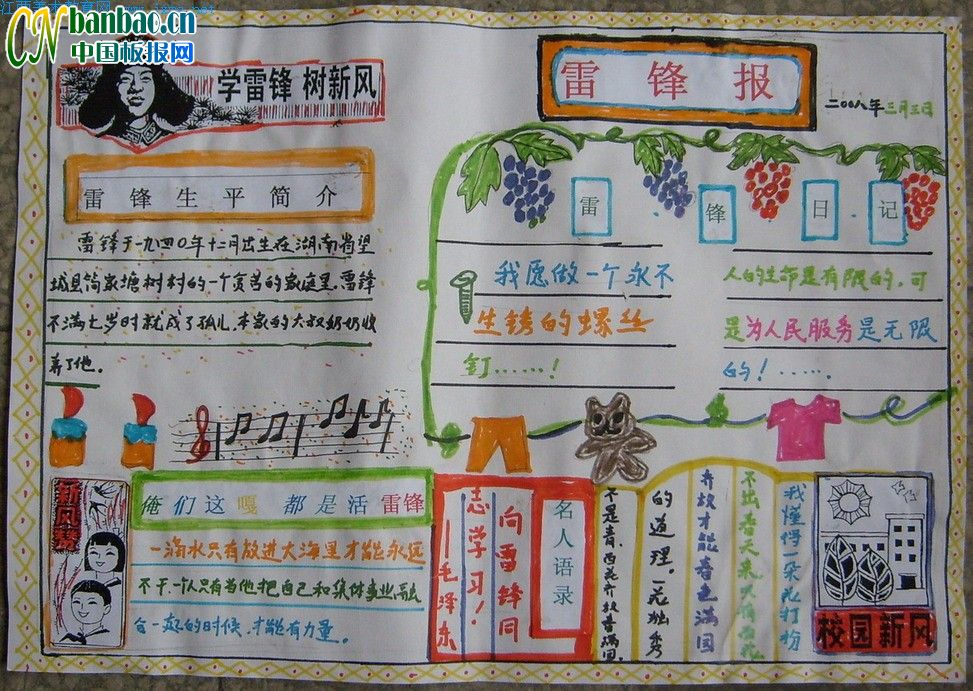 banbao.cn
中国板报网
学雷锋 树新风
雷锋报
二00八年三月三日
雷锋生平简介
雷锋于一九四0年十二月出生在湖南省望
城县简家塘树村的一个贫苦的家庭里.雷锋
不满七岁时就成了孤儿.本家的大叔奶奶收
养了他。
雷.锋日.记
我愿做一个永不
生锈的螺丝
钉……!
人的生命是有限的,可
是为人民服务是无限
的!……
新风赞
俺们这嘎都是活雷锋
一滴水只有放进大海里才能永远
不干一个人只有当他把自己和集体事业融
合一起的时候,才能有力量。
名人语录
向雷锋同
志学习!
——毛泽东
我懂得一朵花打扮
不出春天来
齐放才能春色满园
的道理。一花独秀
不是春,百花齐放春满园.
校园新风